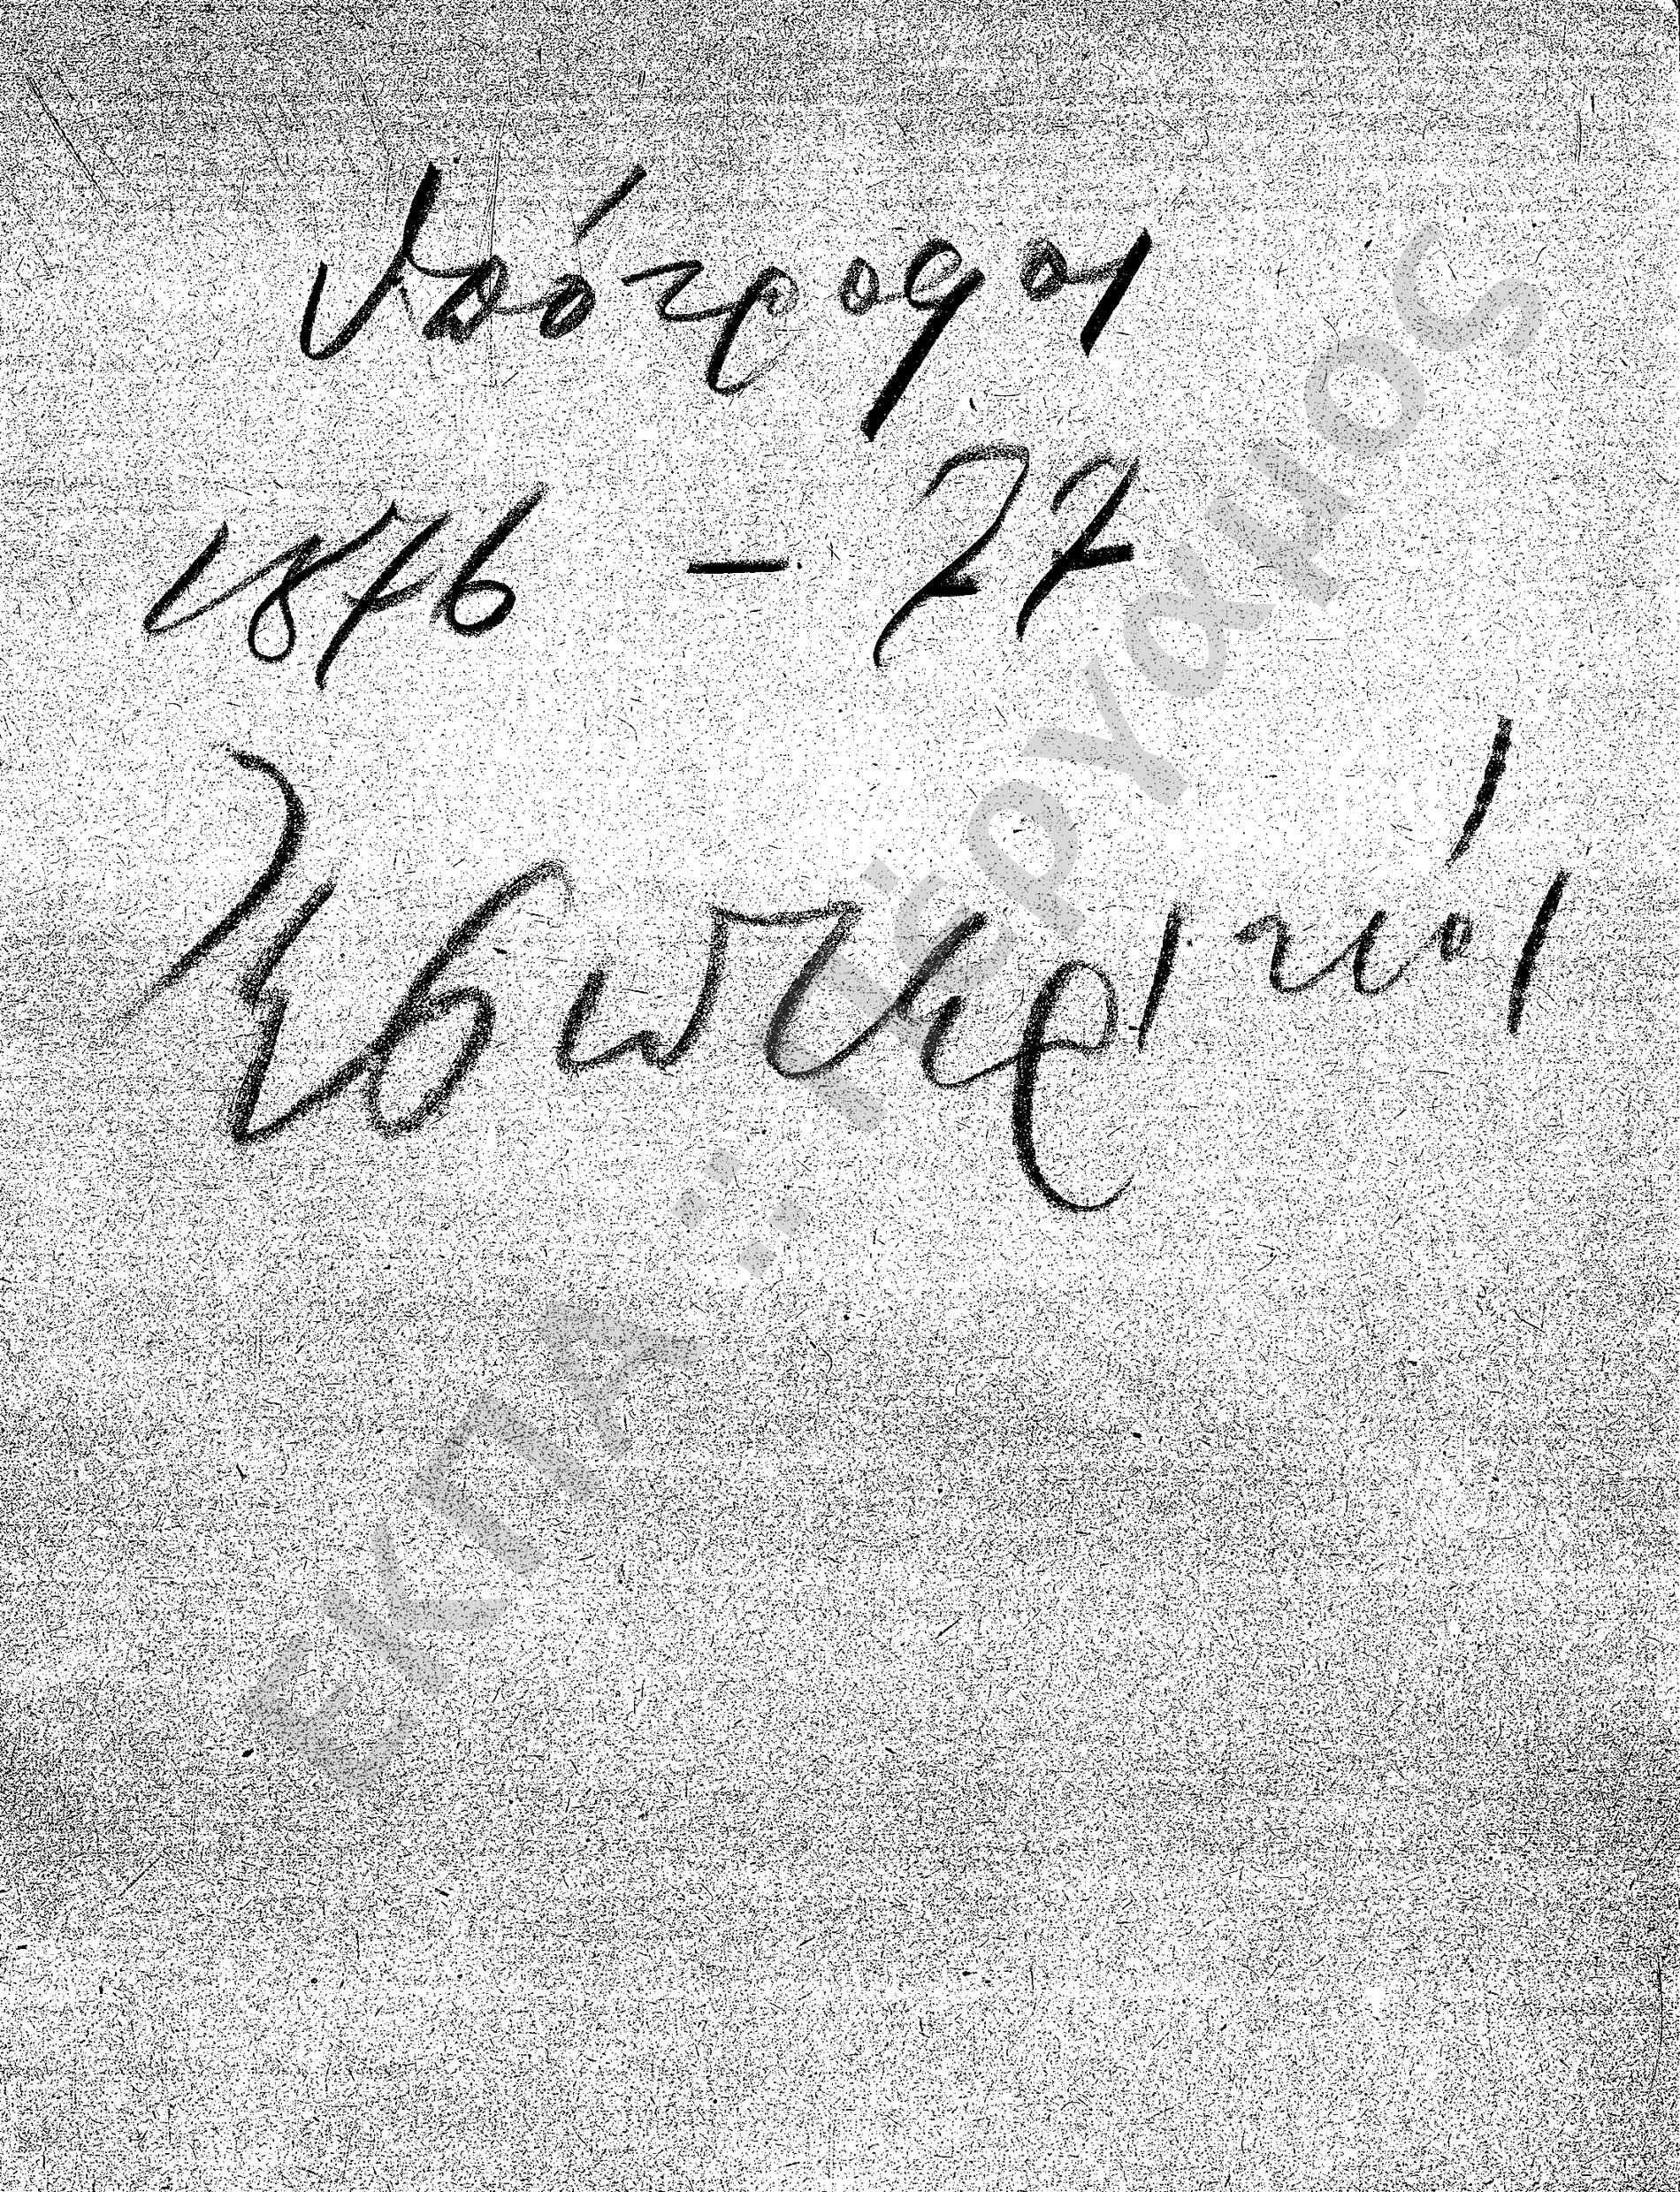 Υπότροφοι
1876 – 77
Ἐσωτερικοί
ΕΚΠΑ :: Πέργαμος